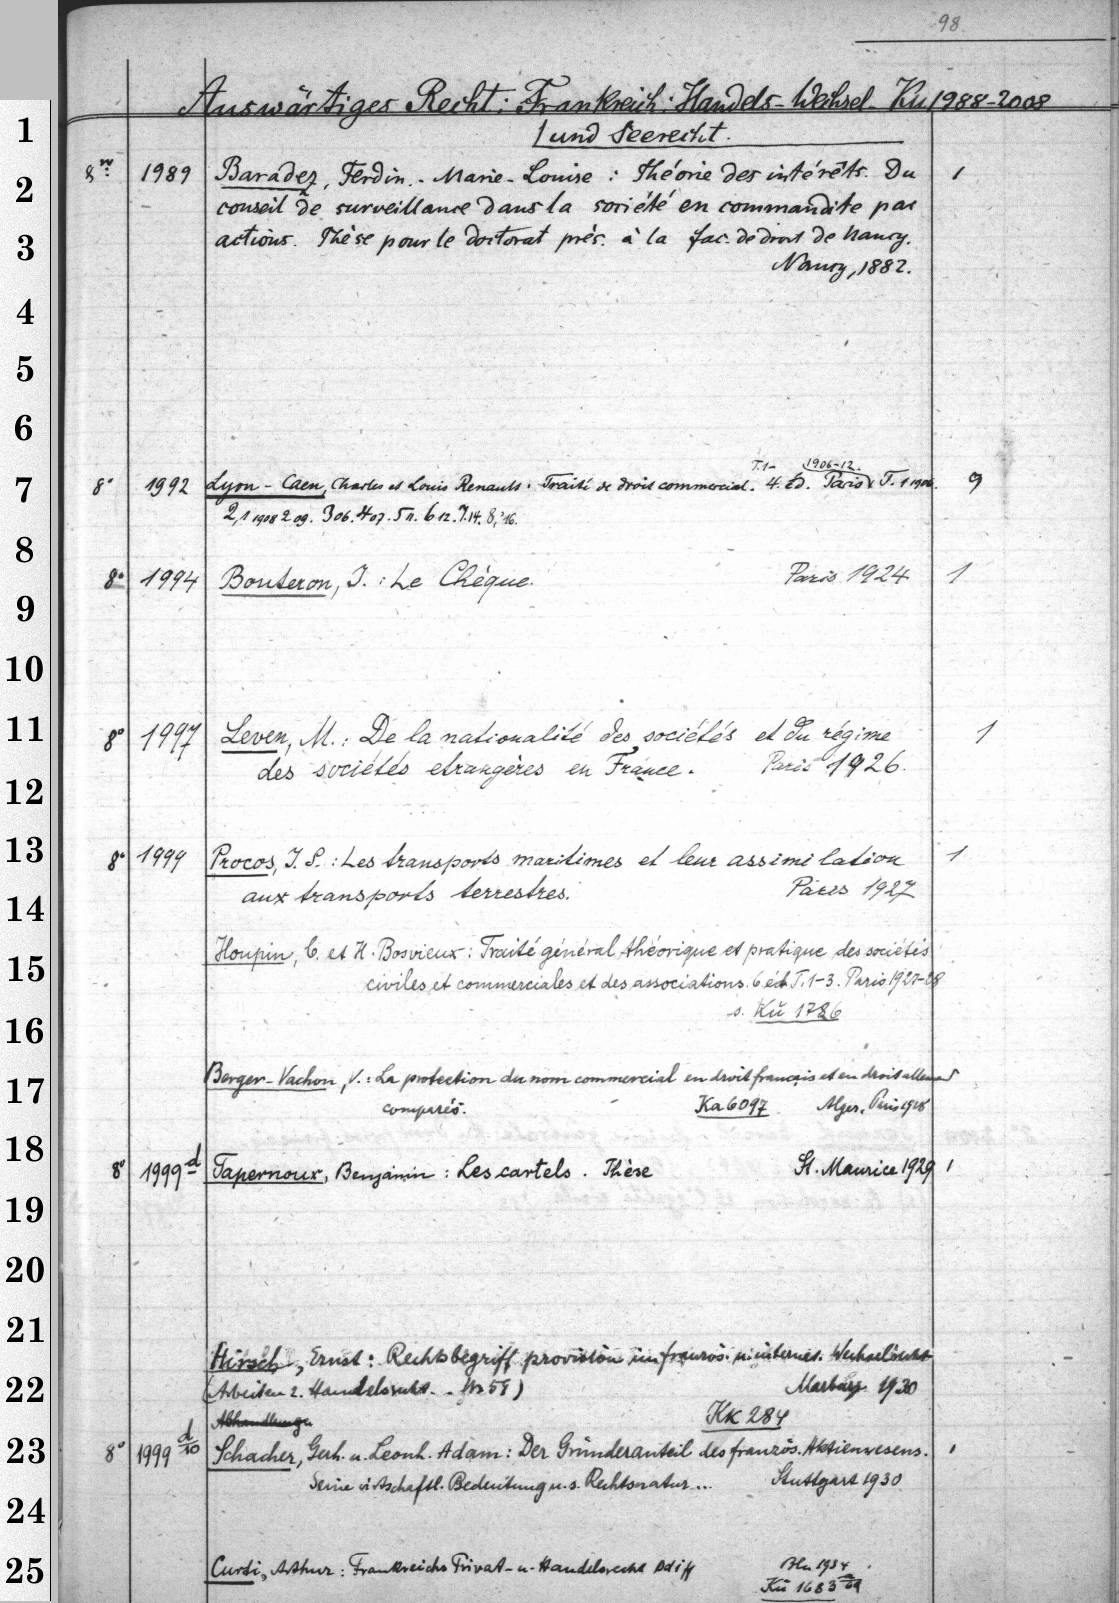 98
Auswärtiges Recht: Frankreich: Handels- Wechsel- Ku 1988-2008
1 und Seerecht.
2 8° 1989 Baradez, Ferdin. - Marie - Louise : Théorie des intérêts. Du 1
conseil de surveillance dans la société en commandite par
3 actions. Thèse pour le doctorat prés. à la fac. de droit de Nancy.
Nancy, 1882.
4
5
6
T.1- 1906-12.
7 8° 1992 Lyon - Caen, Charles et Louis Renault: Traité de droit commercial. 4. éd. Paris T. 1 1906. 9
2,1 1908 2 09. 3 06. 4 07. 5 11. 6 12. 7. 14. 8, '16.
8
8° 1994 Bouteron, J. : Le Chèque. Paris 1924 1
9
10
11 8° 1997 Leven, M. : De la nationalité des sociétés et du régime 1
des sociétés etrangères en France. Paris 1926.
12
13 8° 1999 Procos, J. S. : Les transports maritimes et leur assimilation 1
aux transports terrestres. Paris 1927
14
Houpin, C. et H. Bosvieux : Traité général théorique et pratique des sociétés
15 civiles et commerciales et des associations. 6 éd. T. 1-3. Paris 1927-28
s. Kü 1786
16
17 Berger-Vachon, V. : La protection du nom commercial en droit français et en droit allemand
comparés. Ka 6097 Alger, Paris 1928
18 8° 1999 d Tapernoux, Benjamin : Les cartels. Thèse St. Maurice 1929 1
19
20
21
Hirsch, Ernst : Rechtsbegriff provision im französ. u. internat. Wechselrecht
22 (Arbeiten z. Handelsrecht. - No 58) Marburg 1930
Abhandlungen Kk 284
23 8° 1999 d/10 Schacher, Gerh. u. Leonh. Adam : Der Gründeranteil des französ. Aktienwesens. 1
Seine wirtschaftl. Bedeutung u. s. Rechtsnatur ... Stuttgart 1930
24
25 Curti, Arthur : Frankreichs Privat- u. Handelsrecht Bln 1934
Kü 1683